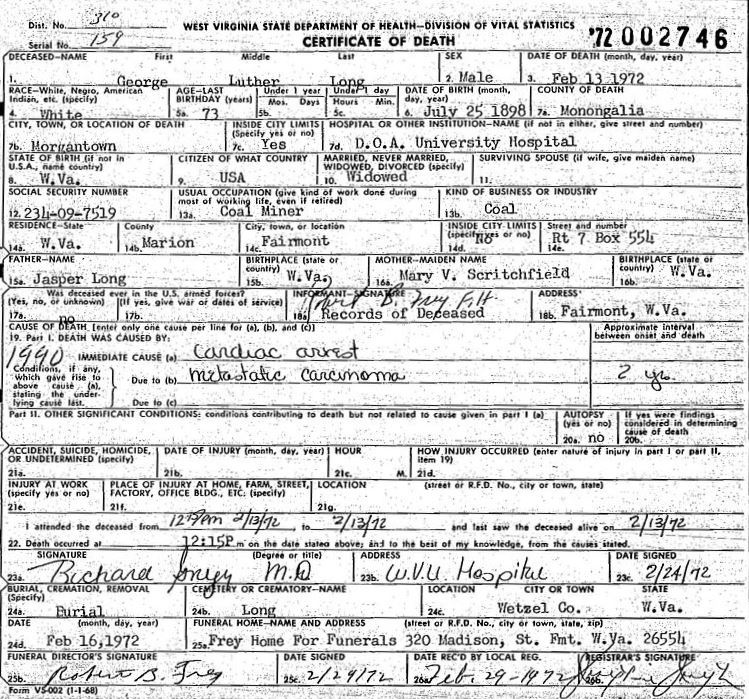 Dist. No. 310
WEST VIRGINIA STATE DEPARTMENT OF HEALTH—DIVISION OF VITAL STATISTICS
Serial No. 159
CERTIFICATE OF DEATH
'72 002746
DECEASED—NAME First Middle Last SEX DATE OF DEATH (month, day, year)
1. George Luther Long 2. Male 3. Feb 13 1972
RACE—White, Negro, American Indian, etc. (specify) AGE—LAST BIRTHDAY (years) Under 1 year Mos. Days Under 1 day Hours Min. DATE OF BIRTH (month, day, year) COUNTY OF DEATH
4. White 5a. 73 5b. 5c. 6. July 25 1898 7a. Monongalia
CITY, TOWN, OR LOCATION OF DEATH INSIDE CITY LIMITS (Specify yes or no) HOSPITAL OR OTHER INSTITUTION—NAME (if not in either, give street and number)
7b. Morgantown 7c. Yes 7d. D.O.A. University Hospital
STATE OF BIRTH (if not in U.S.A., name country) CITIZEN OF WHAT COUNTRY MARRIED, NEVER MARRIED, WIDOWED, DIVORCED (specify) SURVIVING SPOUSE (if wife, give maiden name)
8. W.Va. 9. USA 10. Widowed 11.
SOCIAL SECURITY NUMBER USUAL OCCUPATION (give kind of work done during most of working life, even if retired) KIND OF BUSINESS OR INDUSTRY
12. 234-09-7519 13a. Coal Miner 13b. Coal
RESIDENCE—State County City, town, or location INSIDE CITY LIMITS (specify yes or no) Street and number
14a. W.Va. 14b. Marion 14c. Fairmont 14d. No 14e. Rt 7 Box 554
FATHER—NAME BIRTHPLACE (state or country) MOTHER—MAIDEN NAME BIRTHPLACE (state or country)
15a. Jasper Long 15b. W.Va. 16a. Mary V. Scritchfield 16b. W.Va.
Was deceased ever in the U.S. armed forces? INFORMANT—SIGNATURE ADDRESS
(Yes, no, or unknown) (If yes, give war or dates of service)
17a. no 17b. 18a. Records of Deceased 18b. Fairmont, W.Va.
CAUSE OF DEATH [enter only one cause per line for (a), (b), and (c)] Approximate interval between onset and death
19. Part I. DEATH WAS CAUSED BY:
1990 IMMEDIATE CAUSE (a) Cardiac arrest
Conditions, if any, which gave rise to above cause (a), stating the underlying cause last. Due to (b) metastatic carcinoma 2 yr.
Due to (c)
Part II. OTHER SIGNIFICANT CONDITIONS: conditions contributing to death but not related to cause given in part I (a) AUTOPSY (yes or no) If yes were findings considered in determining cause of death
20a. no 20b.
ACCIDENT, SUICIDE, HOMICIDE, OR UNDETERMINED (specify) DATE OF INJURY (month, day, year) HOUR HOW INJURY OCCURRED (enter nature of injury in part I or part II, item 19)
21a. 21b. 21c. M. 21d.
INJURY AT WORK (specify yes or no) PLACE OF INJURY AT HOME, FARM, STREET, FACTORY, OFFICE BLDG., ETC. (specify) LOCATION (street or R.F.D. No., city or town, state)
21e. 21f. 21g.
I attended the deceased from 2/13/72, to 2/13/72 and last saw the deceased alive on 2/13/72
22. Death occurred at 12:15P m on the date stated above; and to the best of my knowledge, from the causes stated.
SIGNATURE (Degree or title) ADDRESS DATE SIGNED
23a. Richard M.D 23b. W.V.U. Hospital 23c. 2/24/72
BURIAL, CREMATION, REMOVAL (Specify) CEMETERY OR CREMATORY—NAME LOCATION CITY OR TOWN STATE
24a. Burial 24b. Long 24c. Wetzel Co. W.Va.
DATE (month, day, year) FUNERAL HOME—NAME AND ADDRESS (street or R.F.D. No., city or town, state, zip)
24d. Feb 16,1972 25a. Frey Home For Funerals 320 Madison, St. Fmt. W.Va. 26554
FUNERAL DIRECTOR'S SIGNATURE DATE SIGNED DATE REC'D BY LOCAL REG. REGISTRAR'S SIGNATURE
25b. Robert B. Frey 25c. 2/29/72 26a. Feb. 29-1972 26b.
Form VS-002 (1-1-68)